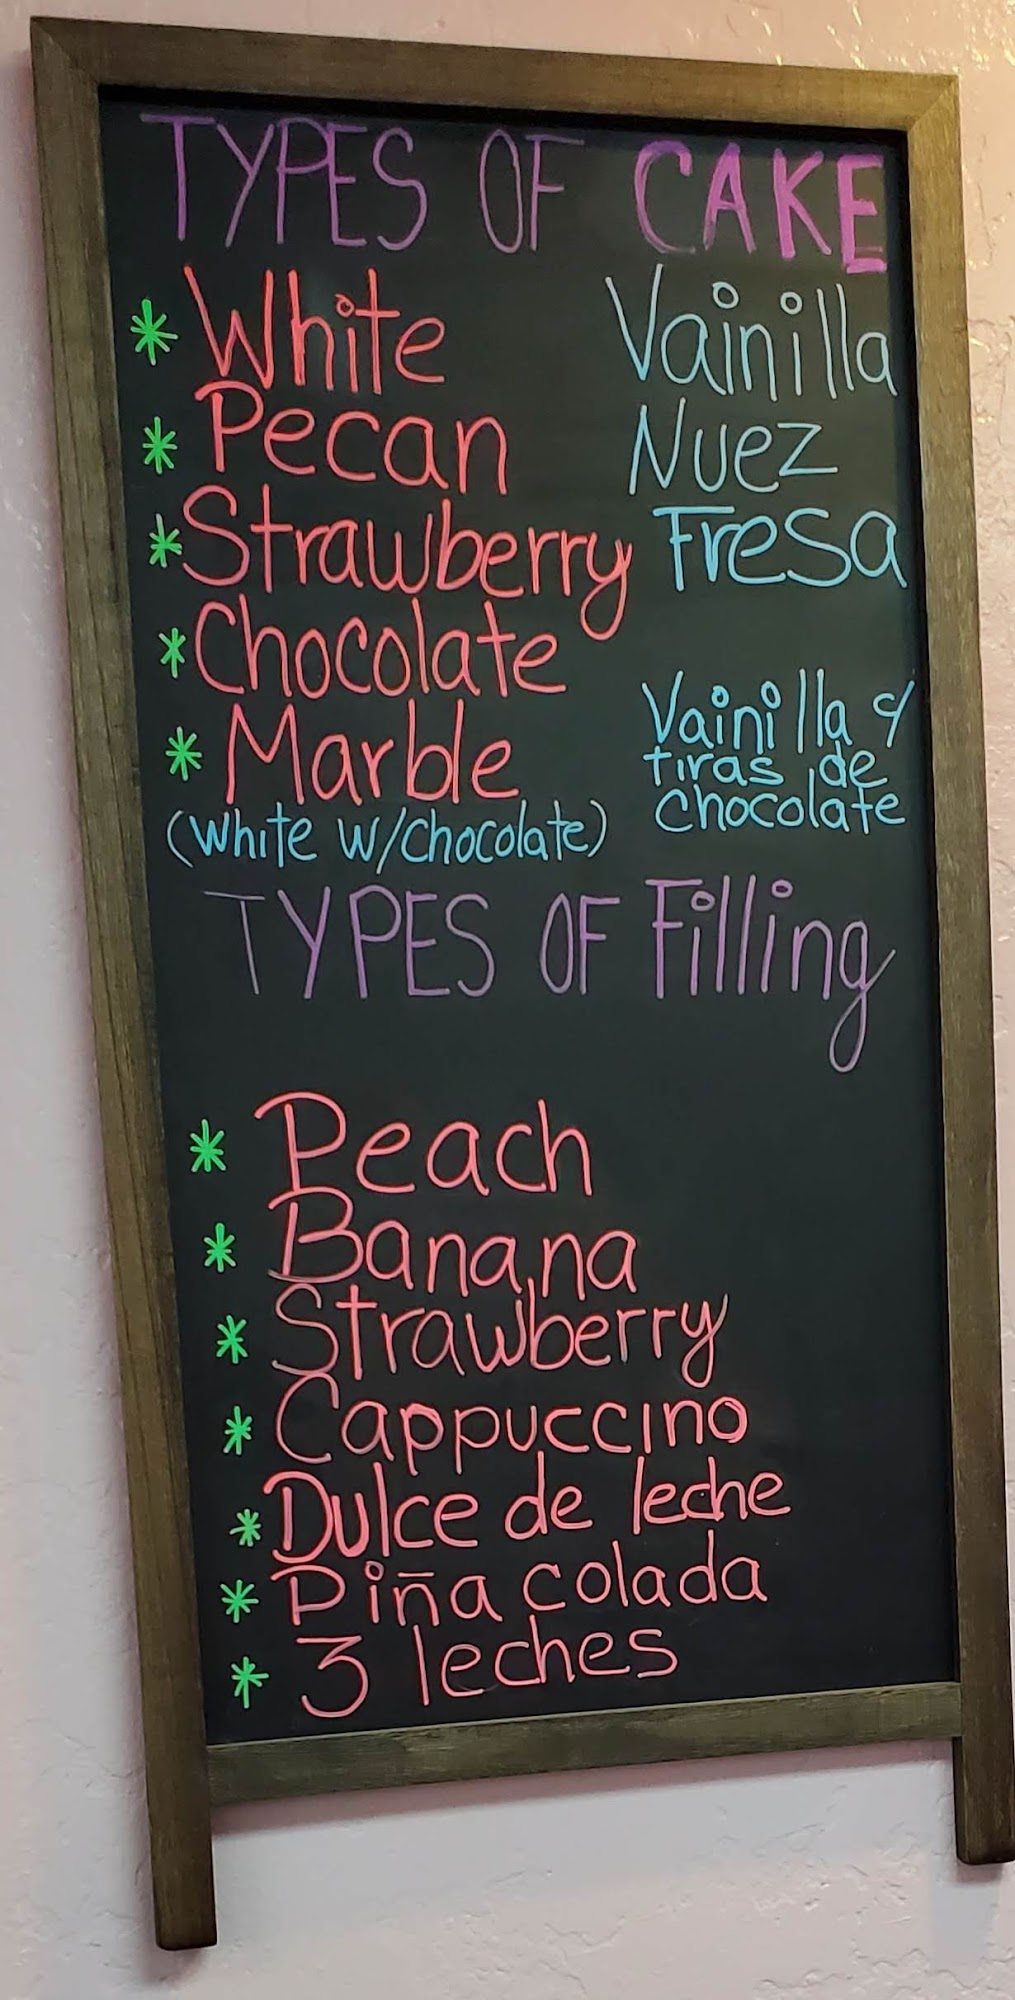 TYPES OF CAKE
* White Vainilla
* Pecan Nuez
* Strawberry Fresa
* Chocolate
* Marble Vainilla y
tiras de
chocolate
(White W/chocolate)
TYPES OF Filling
* Peach
* Banana
* Strawberry
* Cappuccino
* Dulce de leche
* Piña colada
* 3 leches